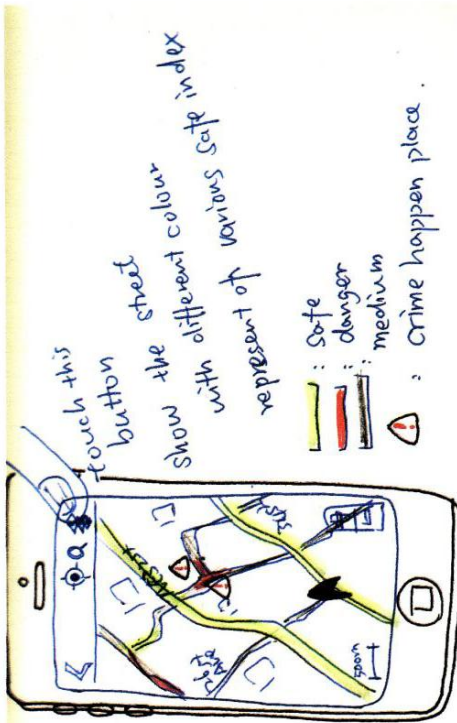 touch this
button
show the street
with different colour
represent of various safe index
: safe
: danger
: medium
: crime happen place.
500m